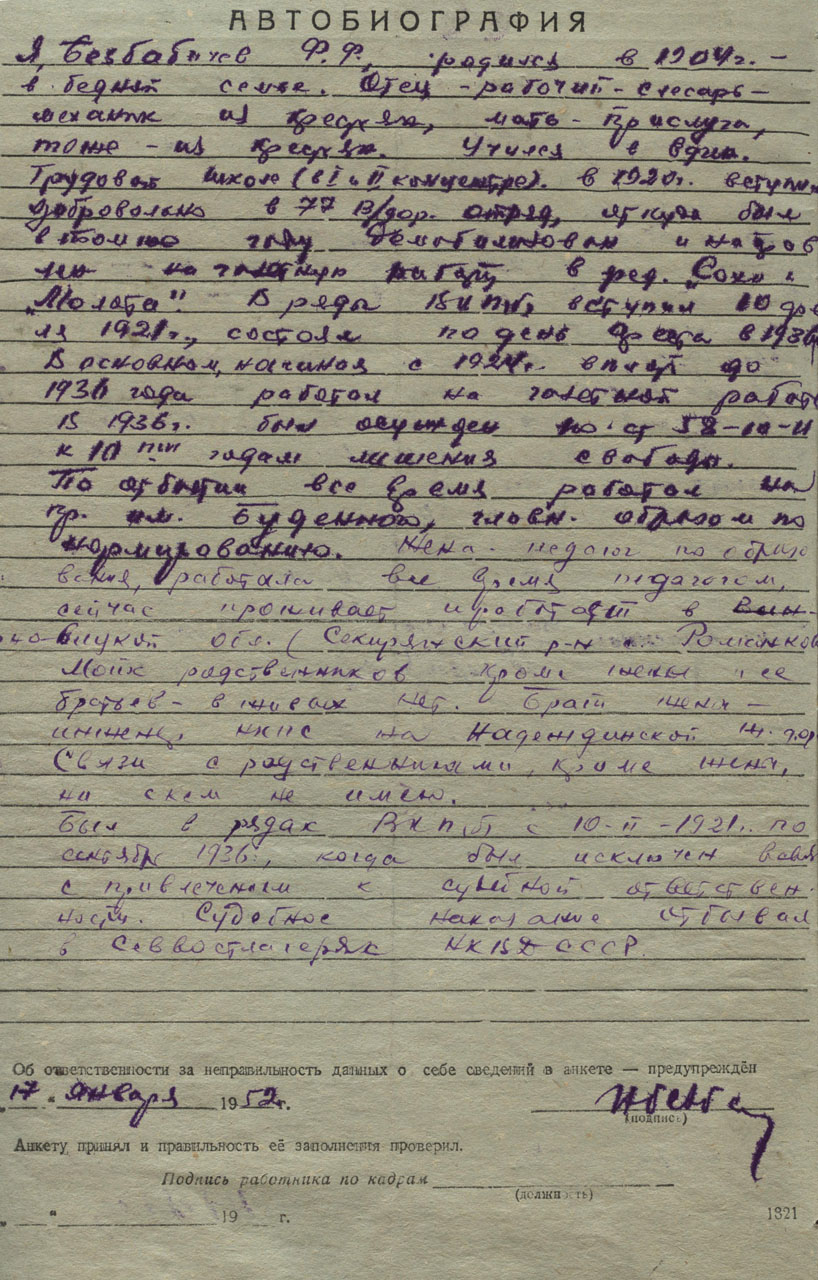 АВТОБИОГРАФИЯ
Я, Безбабичев Ф.Ф., родился в 1904 г. –
в бедной семье. Отец – рабочий – слесарь –
механик из крестьян, мать – прислуга,
тоже – из крестьян. Учился в един.
Трудовой школе (в I и II концентре). в 1920г. вступил
добровольно в 77 отряд, откуда был
в том же году демобилизован и направ
лен на газетную работу в ред. „Сохи и
„Молота". В ряды ВКП(б) вступил 10 фев
ля 1921г., состоял по день ареста в 1936
В основном, начиная с 1924г. вплоть до
1936 года работал на газетной работе
В 1936г. был осужден по ст 58-10-11
к 10 ти годам лишения свободы.
По отбытии все время работал на
пр. им. Буденного, главн. образом по
нормированию. Жена – педагог по образо
вания, работала все время педагогом,
сейчас проживает и работает в Вин-
ницкой обл. (Секирянский р-н Романков
Моих родственников кроме жены и ее
братьев – в живых нет. Брат жены –
инжен. НКПС на Надеждинской ж. дор
Связи с родственниками, кроме жены,
ни с кем не имею.
Был в рядах ВКП(б) с 10-II-1921г. по
сентябрь 1936г., когда был исключен в связи
с привлечением к судебной ответствен-
ности. Судебное наказание отбывал
в Севвостлагерях НКВД СССР.
Об ответственности за неправильность данных о себе сведений в анкете — предупреждён
„17" января 1952г.
(подпись)
Анкету принял и правильность её заполнения проверил.
Подпись работника по кадрам
(должность)
„ " 19 г.
1321